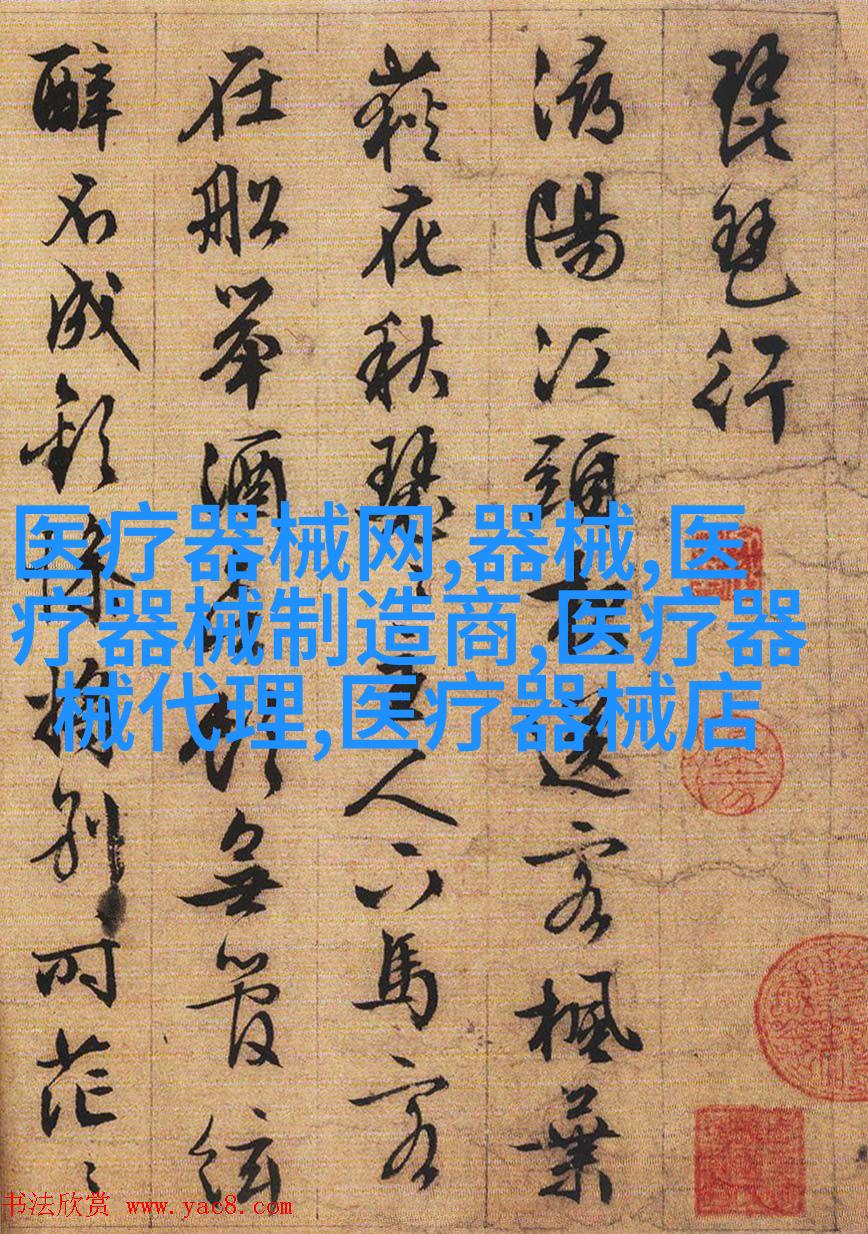 琵琶行
潯陽江頭夜送客楓葉
荻花秋瑟〻主人下馬客
在船舉酒欲飲無管絃
醉不成歡慘將別〻時茫〻
医疗器械网,器械,医
疗器械制造商,医疗器
械代理,医疗器械店
书法欣赏 www.yac8.com